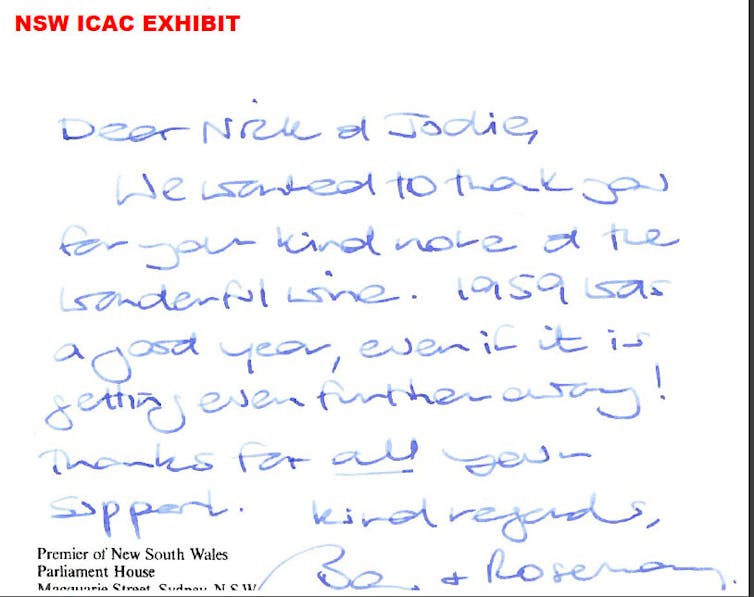 NSW ICAC EXHIBIT
Dear Nick & Jodie,
We wanted to thank you
for your kind note & the
wonderful wine. 1959 was
a good year, even if it is
getting even further away!
Thanks for all your
support. Kind regards,
Premier of New South Wales
Parliament House
Macquarie Street, Sydney, N.S.W
+ Rosemary.